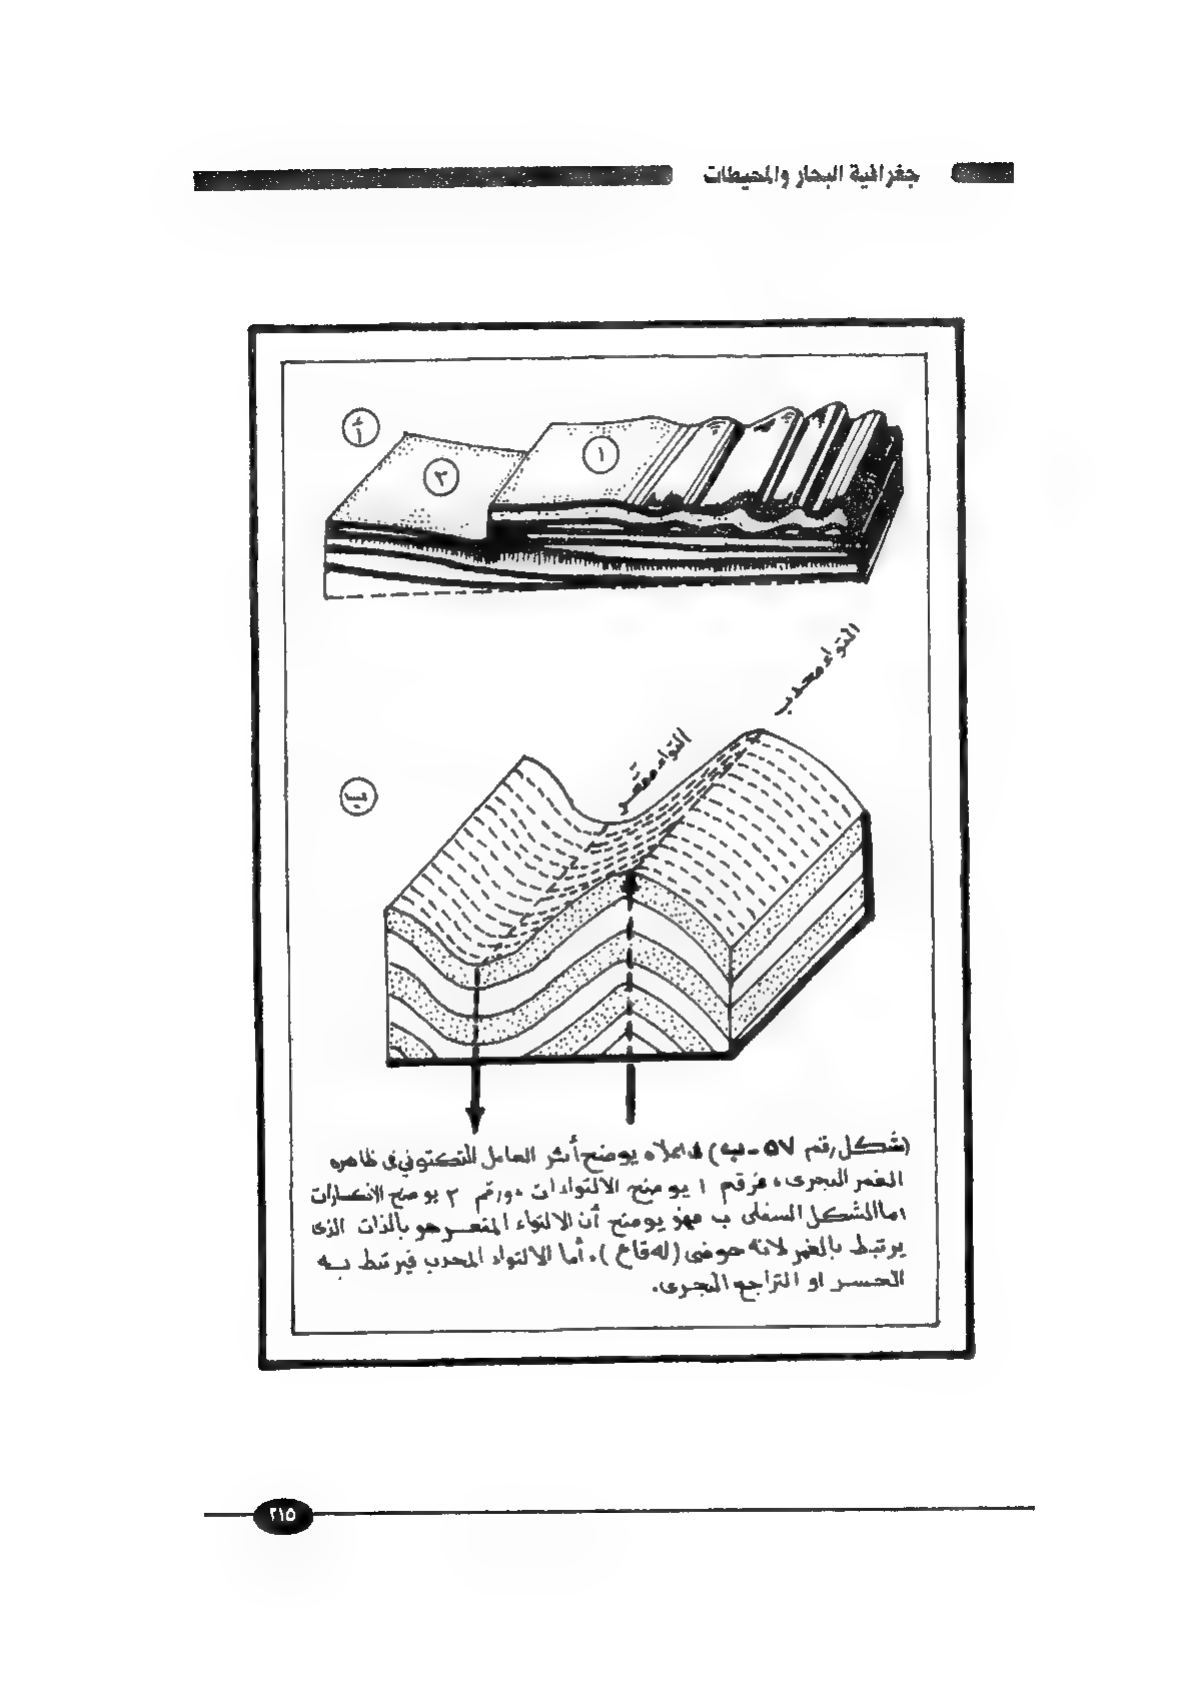 جغرافية البحار والمحيطات
أ
١
٢
التواء محدب
التواء مقعّر
ب
(شكل رقم ٥٧ - ب) اعلاه يوضح أثر العامل التكتوني في ظاهره
الغمر البحرى، فرقم ١ يوضح الالتواءات ورقم ٢ يوضح الانكسارات
اما الشكل السفلى ب فهو يوضح أن الالتواء المقعر هو بالذات الذى
يرتبط بالغمر لانه حوضى (له قاع)، أما الالتواء المحدب فيرتبط به
الحسر او التراجع البحرى.
٢١٥